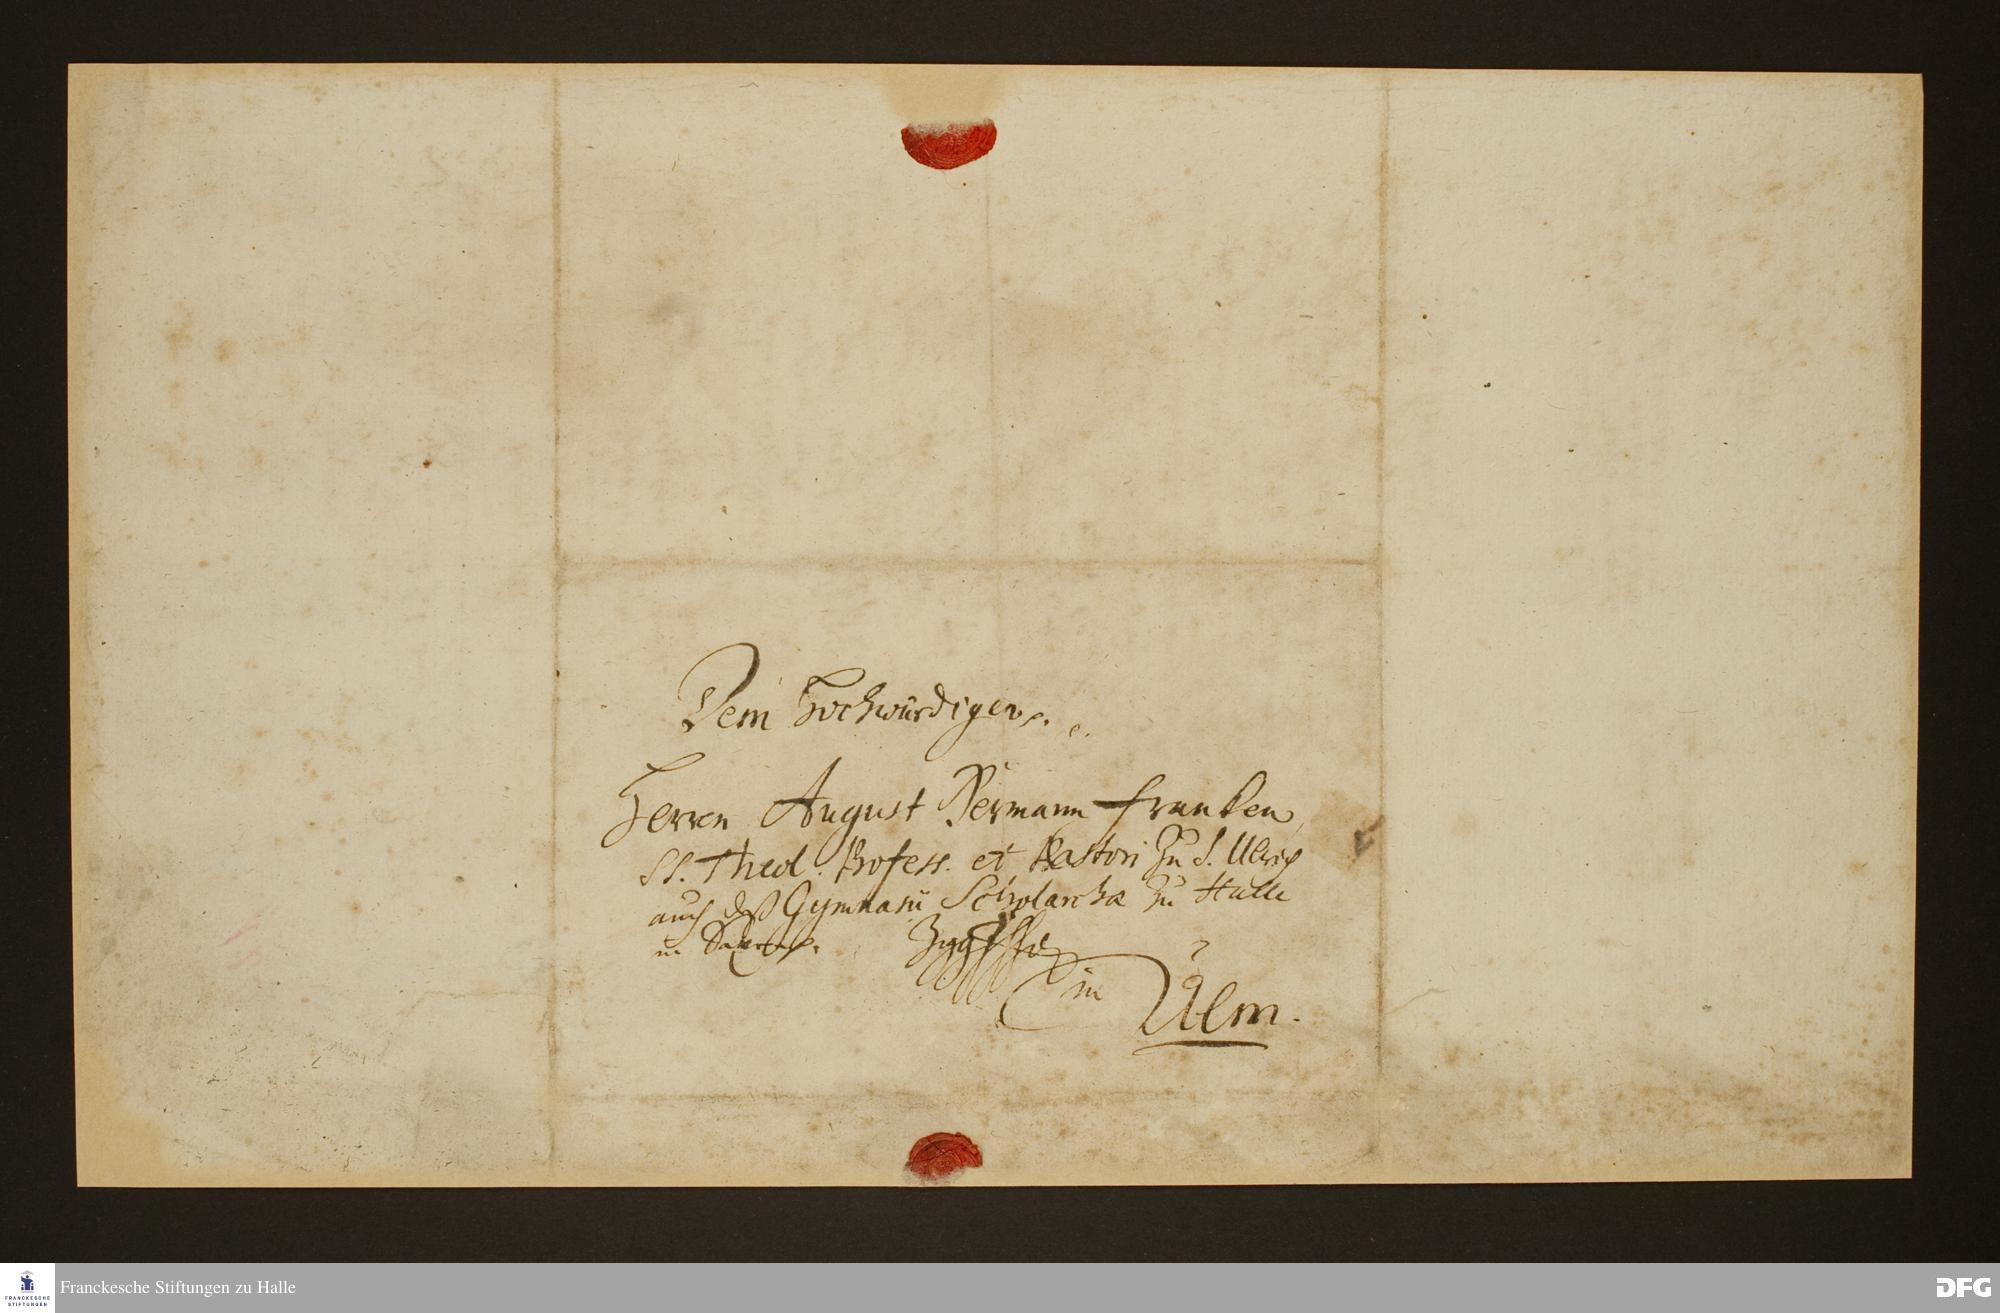 Dem Hochwürdigen.
Herren August Hermann Francken,
SS. Theol. Profess. et Pastori zu S. Ulrich
auch deß Gymnasii Scholarchæ zu Halle
in
in Ulm.
Franckesche Stiftungen zu Halle
FRANCKESCHE
STIFTUNGEN
DFG